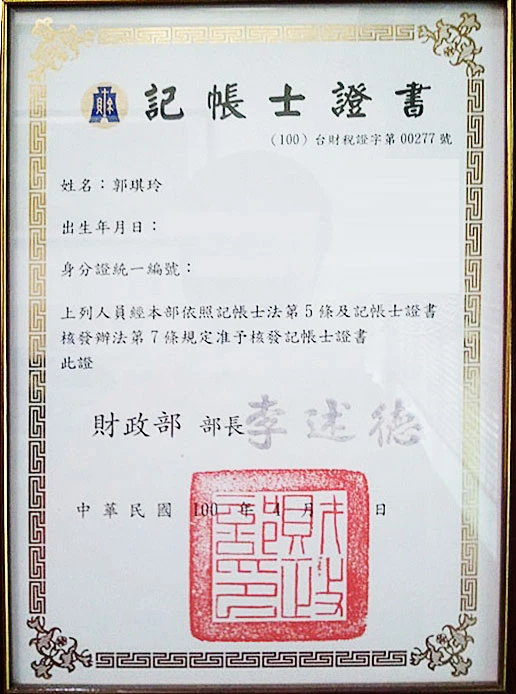 財
記帳士證書
（100）台財稅證字第 00277 號
姓名：郭琪玲
出生年月日：
身分證統一編號：
上列人員經本部依照記帳士法第 5 條及記帳士證書
核發辦法第 7 條規定准予核發記帳士證書
此證
財政部 部長 李述德
中華民國 100 年 4 月 日
財政部印